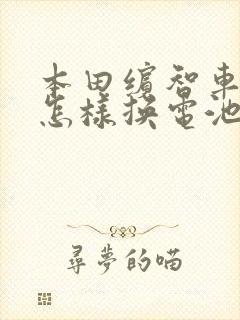 本田繽智車
怎樣換電池
尋夢的喵